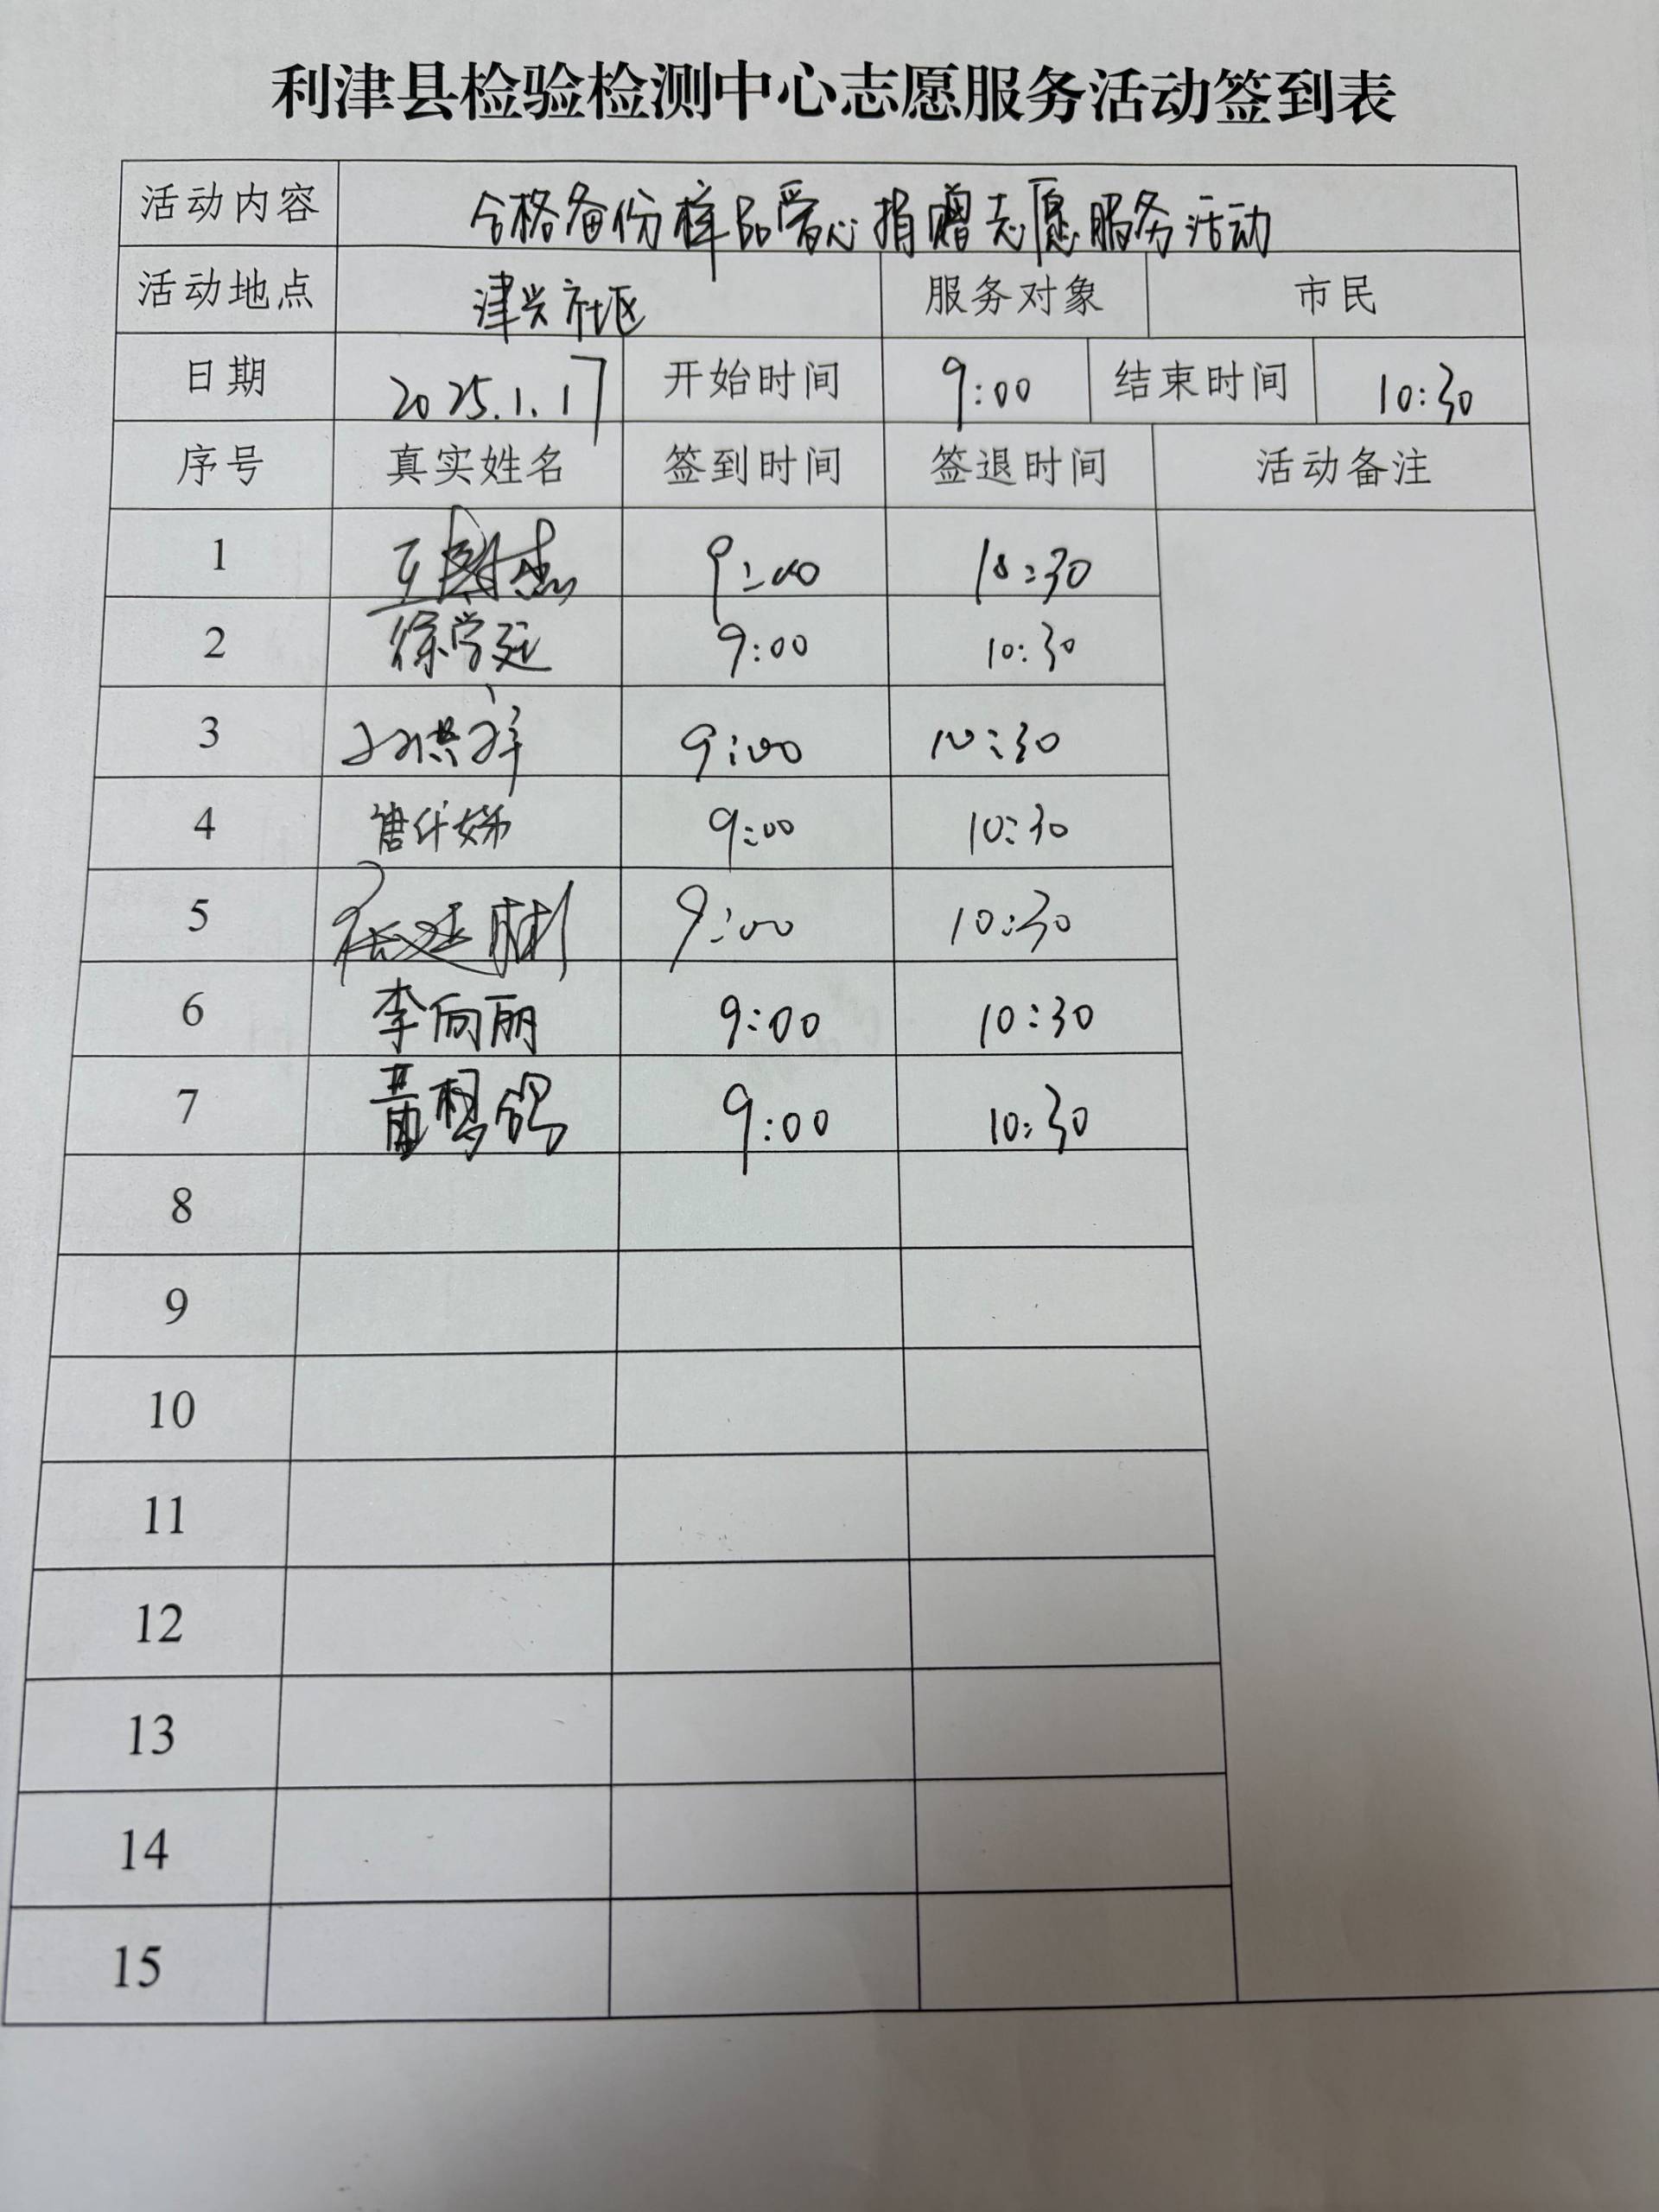 利津县检验检测中心志愿服务活动签到表
活动内容 合格备份样品爱心捐赠志愿服务活动
活动地点 津兴社区 服务对象 市民
日期 2025.1.17 开始时间 9:00 结束时间 10:30
序号 真实姓名 签到时间 签退时间 活动备注
1 9:00 10:30
2 徐学廷 9:00 10:30
3 孙洪祥 9:00 10:30
4 9:00 10:30
5 9:00 10:30
6 李向丽 9:00 10:30
7 9:00 10:30
8
9
10
11
12
13
14
15